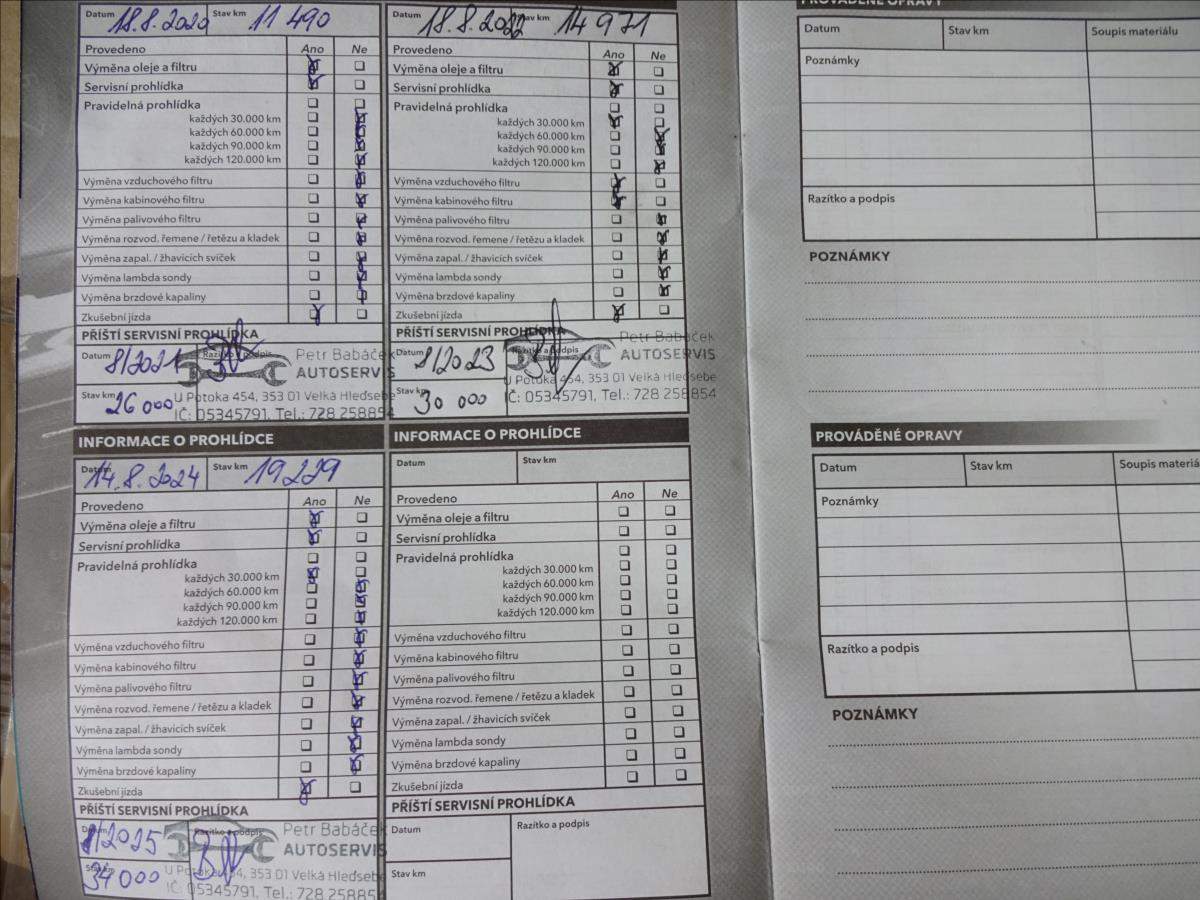 Datum 18.8.2020 Stav km 11 490
Provedeno Ano Ne
Výměna oleje a filtru
Servisní prohlídka
Pravidelná prohlídka
každých 30.000 km
každých 60.000 km
každých 90.000 km
každých 120.000 km
Výměna vzduchového filtru
Výměna kabinového filtru
Výměna palivového filtru
Výměna rozvod. řemene / řetězu a kladek
Výměna zapal. / žhavicích svíček
Výměna lambda sondy
Výměna brzdové kapaliny
Zkušební jízda
PŘÍŠTÍ SERVISNÍ PROHLÍDKA
Datum 8/2021 Razítko a podpis Petr Babáček
AUTOSERVIS
Stav km 26 000 U Potoka 454, 353 01 Velká Hleďsebe
IČ: 05345791, Tel.: 728 258854
Datum 18.8.2022 Stav km 14 971
Provedeno Ano Ne
Výměna oleje a filtru
Servisní prohlídka
Pravidelná prohlídka
každých 30.000 km
každých 60.000 km
každých 90.000 km
každých 120.000 km
Výměna vzduchového filtru
Výměna kabinového filtru
Výměna palivového filtru
Výměna rozvod. řemene / řetězu a kladek
Výměna zapal. / žhavicích svíček
Výměna lambda sondy
Výměna brzdové kapaliny
Zkušební jízda
PŘÍŠTÍ SERVISNÍ PROHLÍDKA
Datum 8/2023 Razítko a podpis Petr Babáček
AUTOSERVIS
Stav km 30 000 U Potoka 454, 353 01 Velká Hleďsebe
IČ: 05345791, Tel.: 728 258854
INFORMACE O PROHLÍDCE
Datum 14.8.2024 Stav km 19229
Provedeno Ano Ne
Výměna oleje a filtru
Servisní prohlídka
Pravidelná prohlídka
každých 30.000 km
každých 60.000 km
každých 90.000 km
každých 120.000 km
Výměna vzduchového filtru
Výměna kabinového filtru
Výměna palivového filtru
Výměna rozvod. řemene / řetězu a kladek
Výměna zapal. / žhavicích svíček
Výměna lambda sondy
Výměna brzdové kapaliny
Zkušební jízda
PŘÍŠTÍ SERVISNÍ PROHLÍDKA
Datum 8/2025 Razítko a podpis Petr Babáček
AUTOSERVIS
Stav km 34 000 U Potoka 454, 353 01 Velká Hleďsebe
IČ: 05345791, Tel.: 728 25885
INFORMACE O PROHLÍDCE
Datum Stav km
Provedeno Ano Ne
Výměna oleje a filtru
Servisní prohlídka
Pravidelná prohlídka
každých 30.000 km
každých 60.000 km
každých 90.000 km
každých 120.000 km
Výměna vzduchového filtru
Výměna kabinového filtru
Výměna palivového filtru
Výměna rozvod. řemene / řetězu a kladek
Výměna zapal. / žhavicích svíček
Výměna lambda sondy
Výměna brzdové kapaliny
Zkušební jízda
PŘÍŠTÍ SERVISNÍ PROHLÍDKA
Datum Razítko a podpis
Stav km
PROVÁDĚNÉ OPRAVY
Datum Stav km Soupis materiálu
Poznámky
Razítko a podpis
POZNÁMKY
PROVÁDĚNÉ OPRAVY
Datum Stav km Soupis materiá
Poznámky
Razítko a podpis
POZNÁMKY